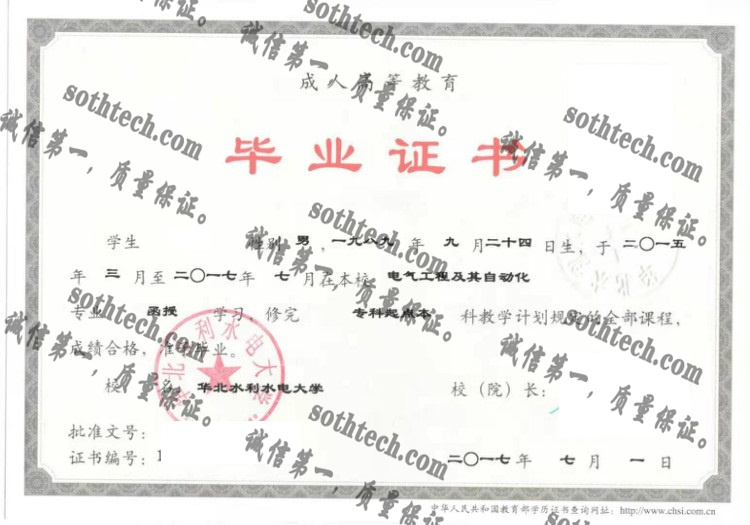 成人高等教育
毕业证书
学生 性别 男，一九八九年 九月二十四日生，于二〇一五
年 三月至二〇一七年 七月在本校 电气工程及其自动化
专业 函授 学习，修完 专科起点本 科教学计划规定的全部课程，
成绩合格，准予毕业。
校 名 华北水利水电大学 校（院）长：
批准文号：
证书编号：1
二〇一七年 七月 一日
中华人民共和国教育部学历证书查询网址：http://www.chsi.com.cn
华北水利水电大学
sothtech.com
诚信第一，质量保证。
sothtech.com
诚信第一，质量保证。
sothtech.com
诚信第一，质量保证。
sothtech.com
诚信第一，质量保证。
sothtech.com
诚信第一，质量保证。
sothtech.com
诚信第一，质量保证。
sothtech.com
诚信第一，质量保证。